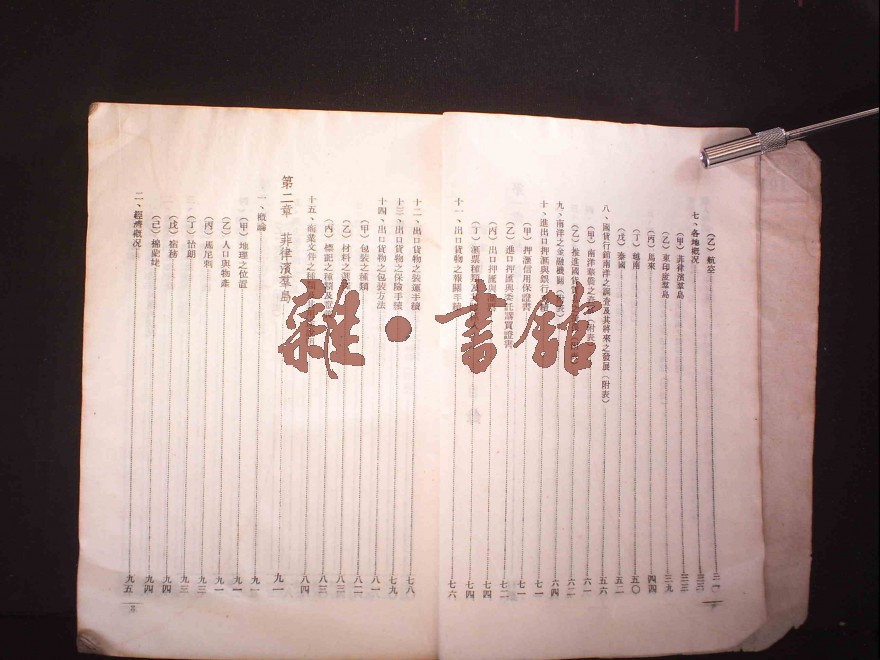 (乙)航空……三〇
七、各地概況……三三
(甲)菲律濱羣島……三三
(乙)東印度羣島……三九
(丙)馬來……四四
(丁)越南……五〇
(戊)泰國……五二
八、國貨行銷南洋之調查及其將來之發展(附表)……五六
(甲)南洋華僑之 (附表)……六一
(乙)推進國貨……六二
九、南洋之金融機關(附表)……六四
十、進出口押滙與銀行 手續……七一
(甲)押滙信用保證書……七一
(乙)進口押滙與委託購買證書……七二
(丙)出口押滙與……七四
(丁)滙票種類及……七四
十一、出口貨物之報關手續……七六
十二、出口貨物之裝運手續……七八
十三、出口貨物之保險手續……七九
十四、出口貨物之包裝方法……八一
(甲)包裝之種類……八二
(乙)材料之選……八三
(丙)標記之種類及……八三
十五、商業文件之種類……八四
第二章 菲律濱羣島……九一
一、概論……九一
(甲)地理之位置……九一
(乙)人口與物產……九一
(丙)馬尼剌……九三
(丁)怡朗……九三
(戊)宿務……九四
(己)棉蘭佬……九四
二、經濟概況……九五
雜•書館